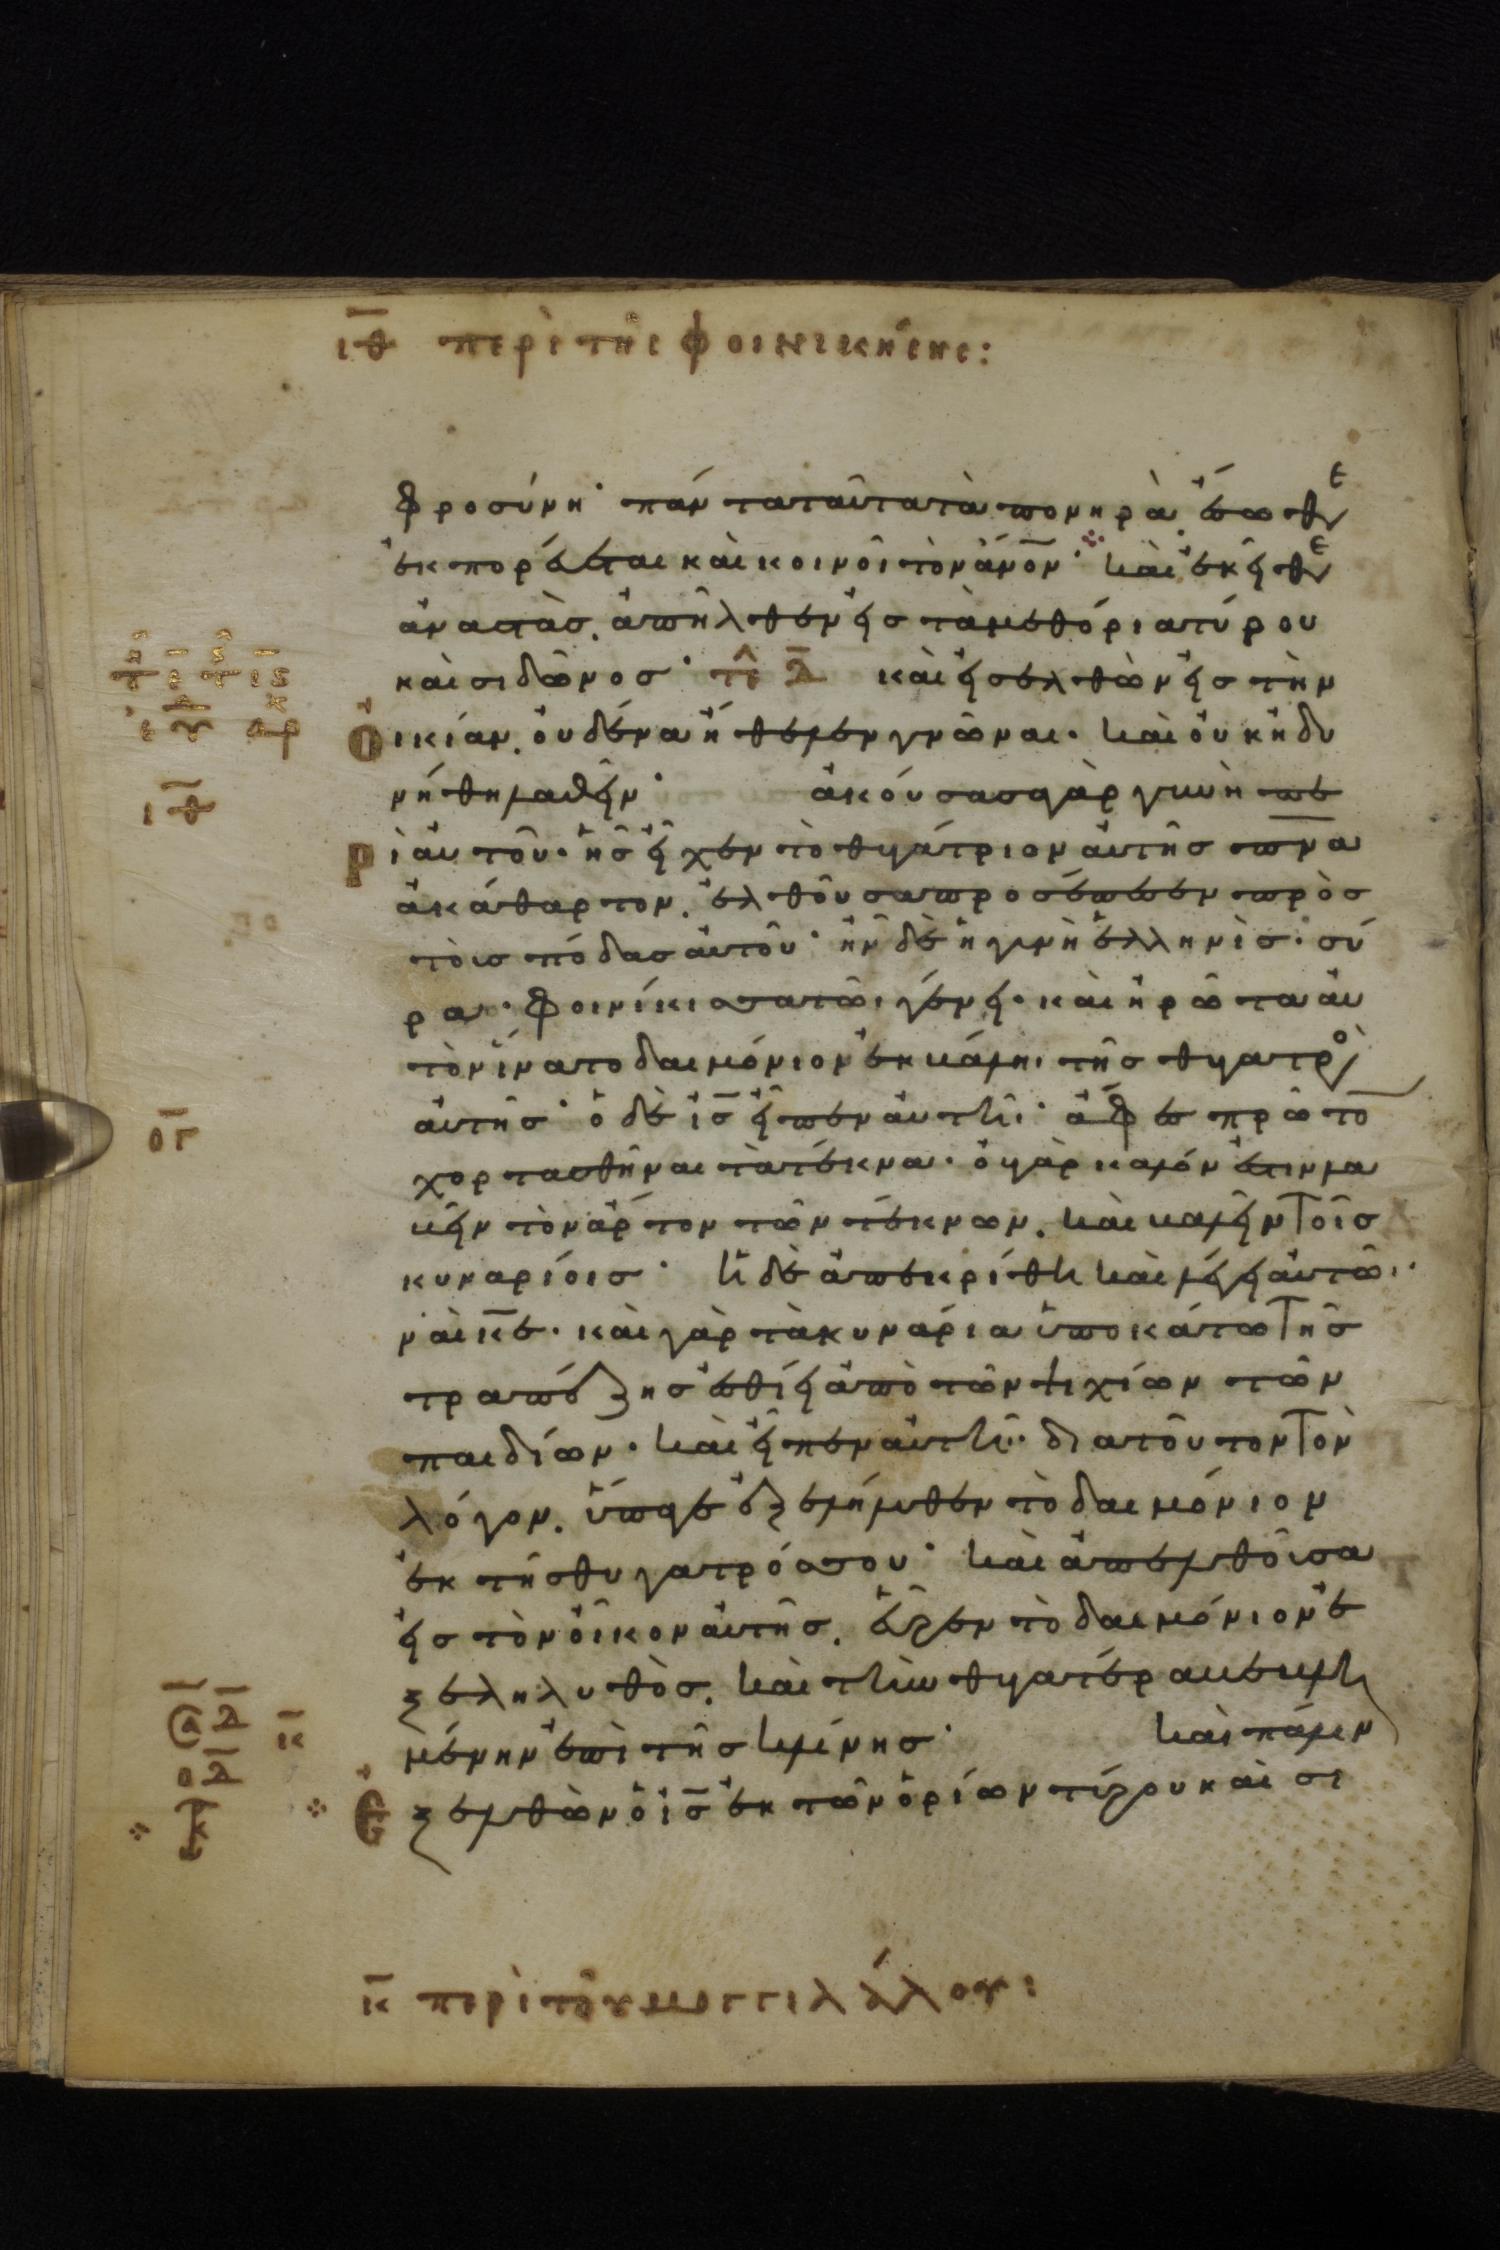 ιθ περὶ τῆς φοινικήσης:
φροσύνη· πάντα ταῦτα τὰ πονηρὰ, ἔσωθε
ἐκπορεύεται καὶ κοινοῖ τὸν ἄνον· καὶ ἐκεῖθε
ἀναστὰς, ἀπῆλθεν εἰς τὰ μεθόρια τύρου
καὶ σιδῶνος· καὶ εἰσελθὼν εἰς τὴν
οἰκίαν, οὐδένα ἤθελεν γνῶναι· καὶ οὐκ ἠδυ
νήθη λαθεῖν· ἀκούσασα γὰρ γυνὴ πε
ρὶ αὐτοῦ· ἧς εἶχεν τὸ θυγάτριον αὐτῆς πνα
ἀκάθαρτον, ἐλθοῦσα προσέπεσεν πρὸς
τοὺς πόδας αὐτοῦ· ἦν δὲ ἡ γυνὴ ἑλληνὶς· σύ
ρα· φοινίκισσα τῶ γένει· καὶ ἠρώτα αὐ
τὸν ἵνα το δαιμόνιον ἐκβάλη τῆς θυγατρὸς
αὐτῆς· ὁ δὲ ις εἶπεν αὐτῆ· ἄφες πρῶτο
χορτασθῆναι τὰ τέκνα· ὀ γὰρ καλόν ἐστιν λα
βεῖν τὸν ἄρτον τῶν τέκνων, καὶ βαλεῖν τοῖς
κυναρίοις· ἡ δὲ ἀπεκρίθη καὶ λέγει αὐτῶ·
ναὶ κε· καὶ γὰρ τὰ κυνάρια ὑποκάτω τῆς
τραπέζης ἐσθίει ἀπὸ τῶν ψιχίων τῶν
παιδίων· καὶ εἶπεν αὐτῆ· διὰ τοῦτον τὸν
λόγον, ὕπαγε ἐξελήλυθεν τὸ δαιμόνιον
ἐκ τῆς θυγατρός σου· καὶ ἀπελθοῦσα
εἰς τὸν οἶκον αὐτῆς, εὗρεν τὸ δαιμόνιον ἐ
ξεληλυθὸς, καὶ τὴν θυγατέρα βεβλη
μένην ἐπὶ τῆς κλίνης· καὶ πάλιν
ἐξελθὼν ὁ ις ἐκ τῶν ὁρίων τύρου καὶ σι
ιθ
ογ
οδ
κ
κ περὶ τοῦ μογγιλάλου: